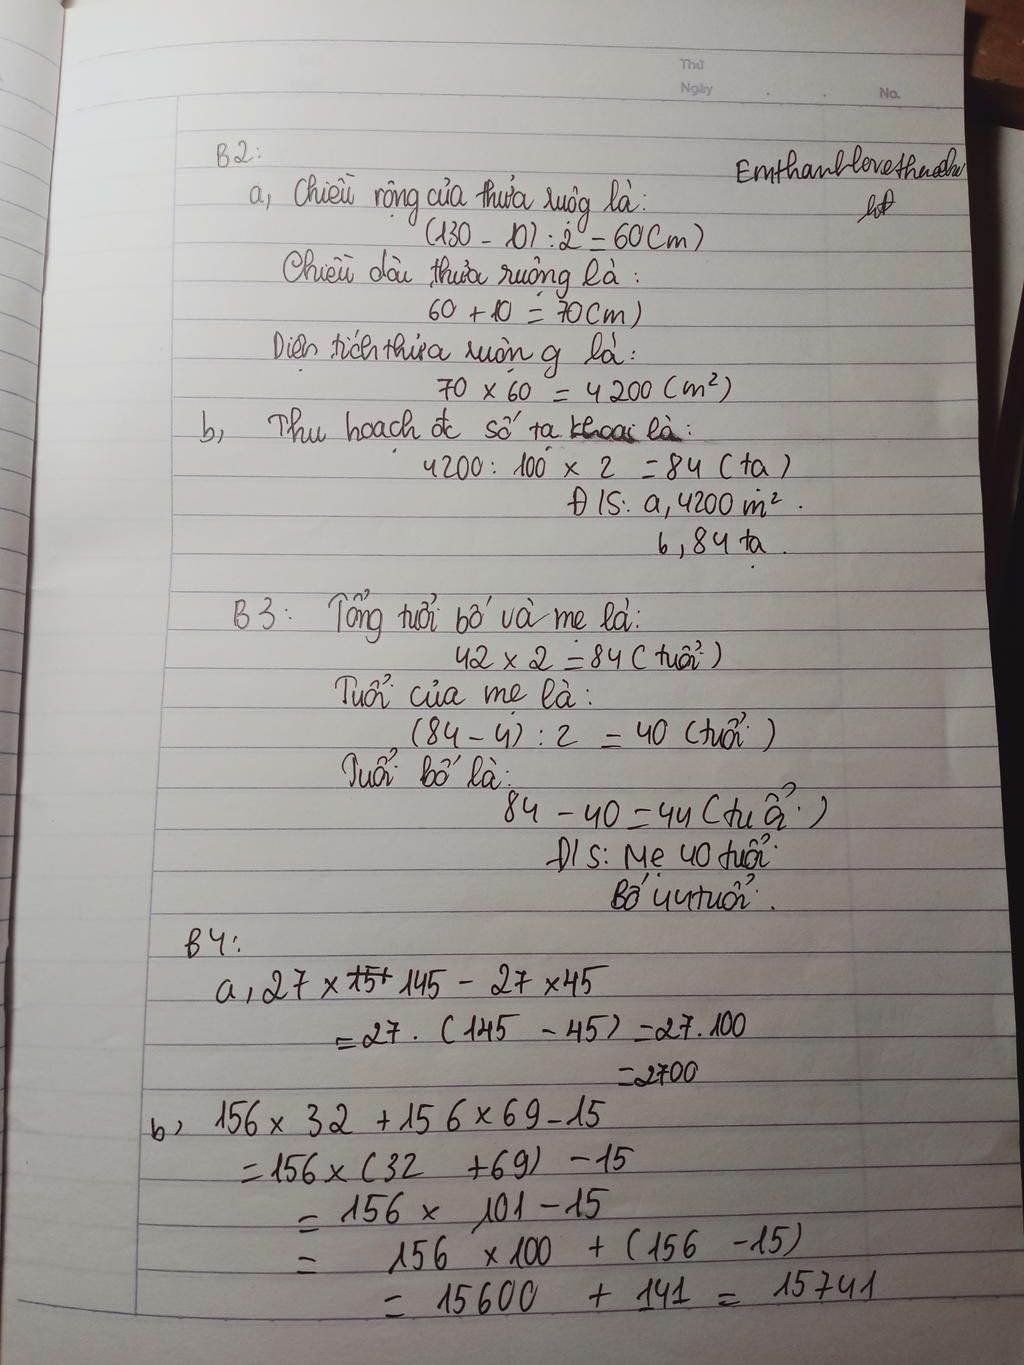 Thứ
Ngày . . No.
B2:
Emthanhlovethuchu
a, Chiều rộng của thửa ruộg là:
(130 - 10) : 2 = 60(m)
Chiều dài thửa ruộng là :
60 + 10 = 70(m)
Diện tích thửa ruộng là:
70 x 60 = 4200 (m²)
b, Thu hoạch đc số tạ khoai là:
4200 : 100 x 2 = 84 (tạ)
Đ/S: a, 4200 m².
b, 84 tạ.
B3: Tổng tuổi bố và mẹ là:
42 x 2 = 84 (tuổi)
Tuổi của mẹ là:
(84 - 4) : 2 = 40 (tuổi)
Tuổi bố là:
84 - 40 = 44 (tuổi)
Đ/S: Mẹ 40 tuổi
Bố 44 tuổi.
B4:
a, 27 x 145 - 27 x 45
= 27 . (145 - 45) = 27.100
= 2700
b, 156 x 32 + 156 x 69 - 15
= 156 x (32 + 69) - 15
= 156 x 101 - 15
= 156 x 100 + (156 - 15)
= 15600 + 141 = 15741